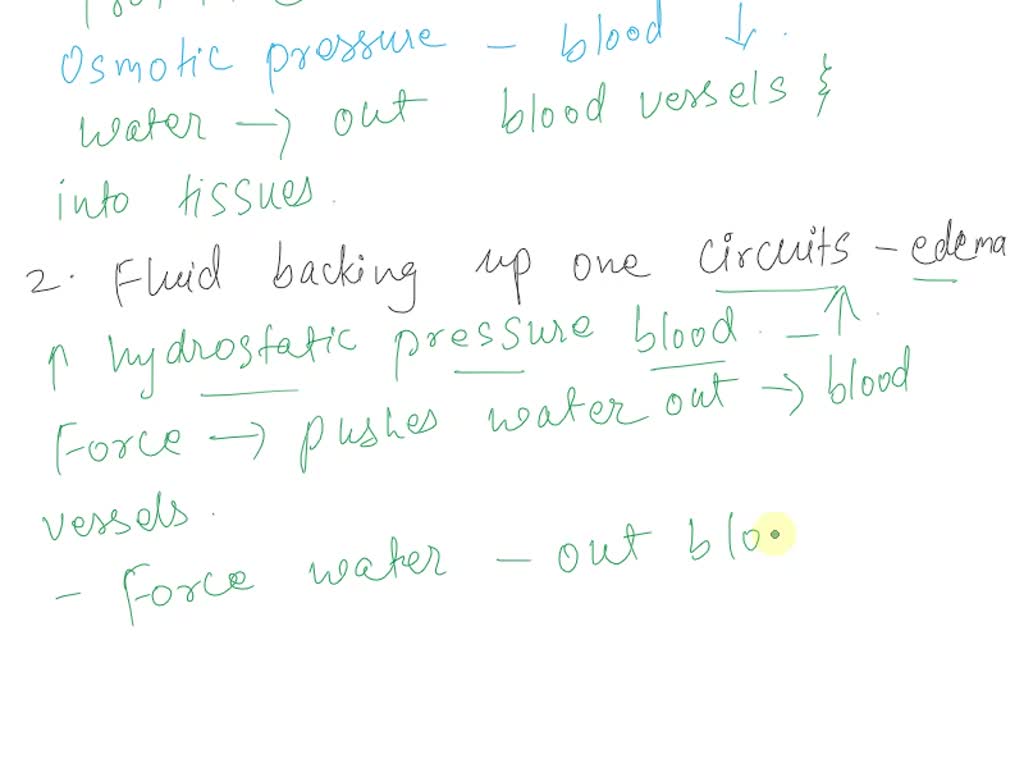 Osmotic pressure - blood ↓.
water → out blood vessels &
into tissues.
2. Fluid backing up one circuits - edema
↑ hydrostatic pressure blood. - ↑.
Force → pushes water out → blood
vessels.
- Force water - out blo